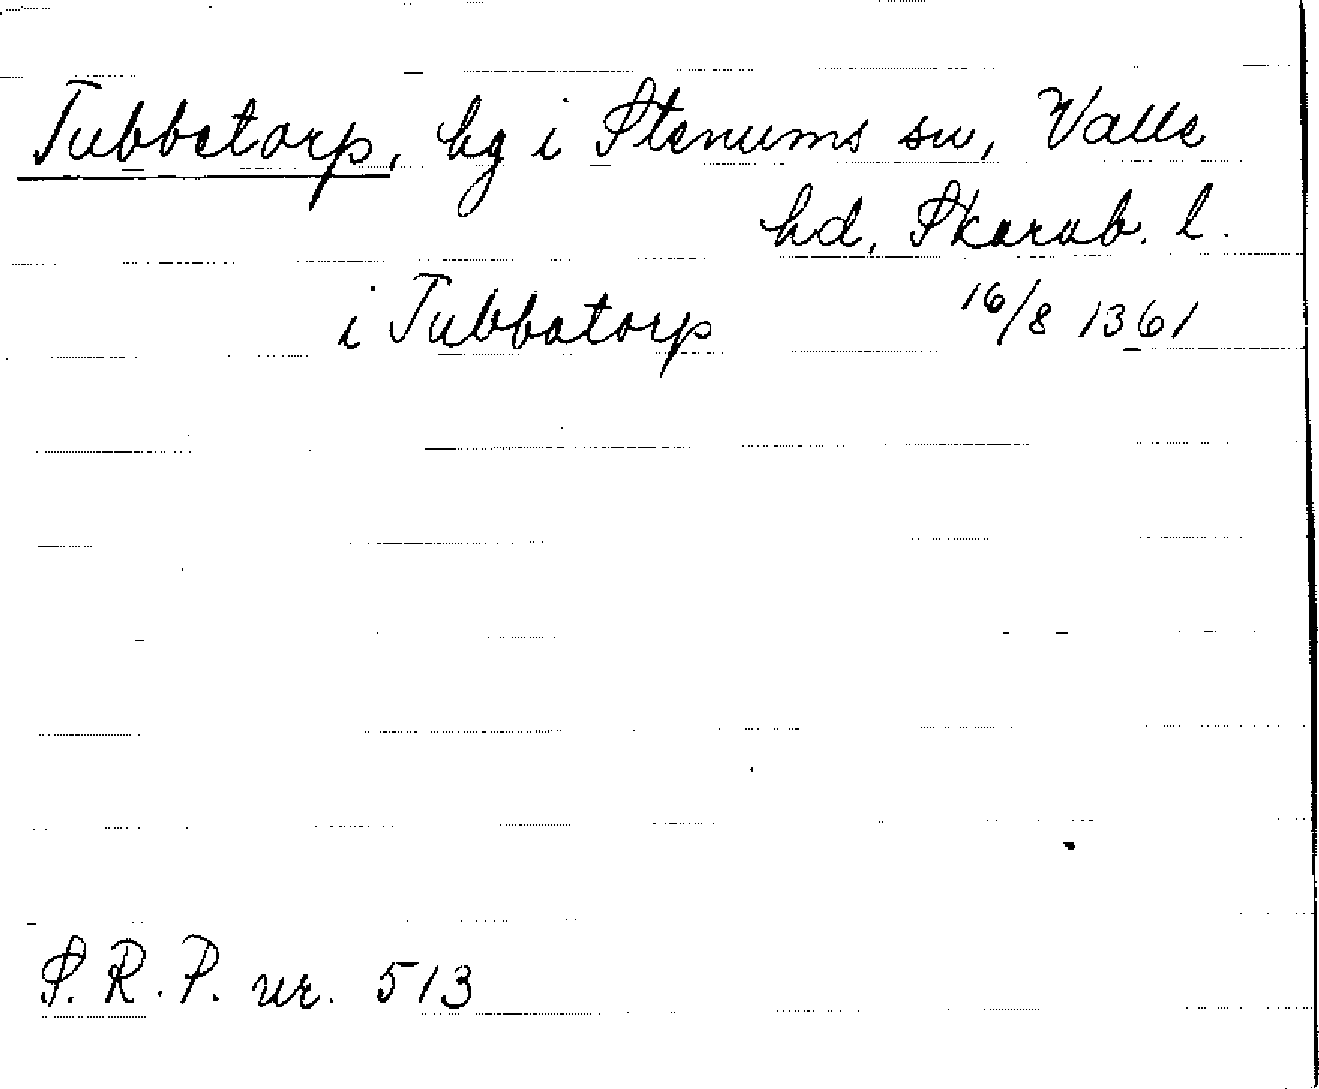 Tubbetorp, hg i Stenums sn, Valle
hd, Skarab. l.
i Tubbatorp 16/8 1361
S.R.P. nr. 513